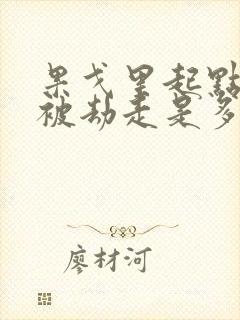 果戈里起點
被劫走是多
廖材河